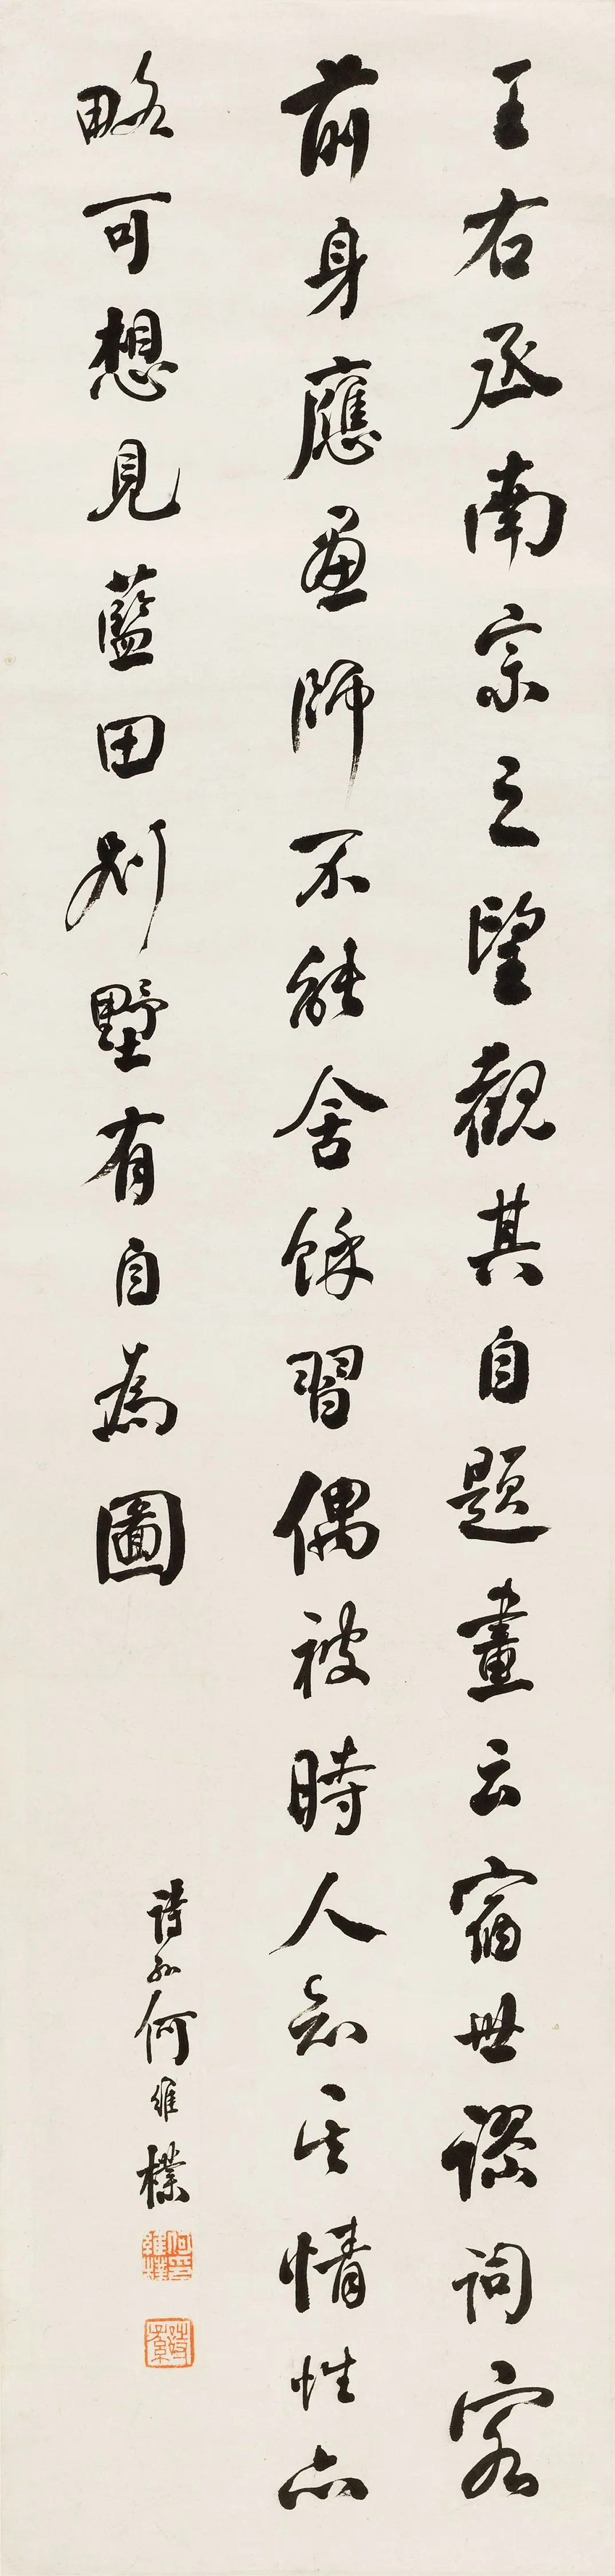 王右丞南宗之望觀其自題畫云宿世謬詞客
前身應畫師不能舍餘習偶被時人知其情性亦
略可想見藍田別墅有自為圖
詩孫何維樸
何維樸印
詩孫